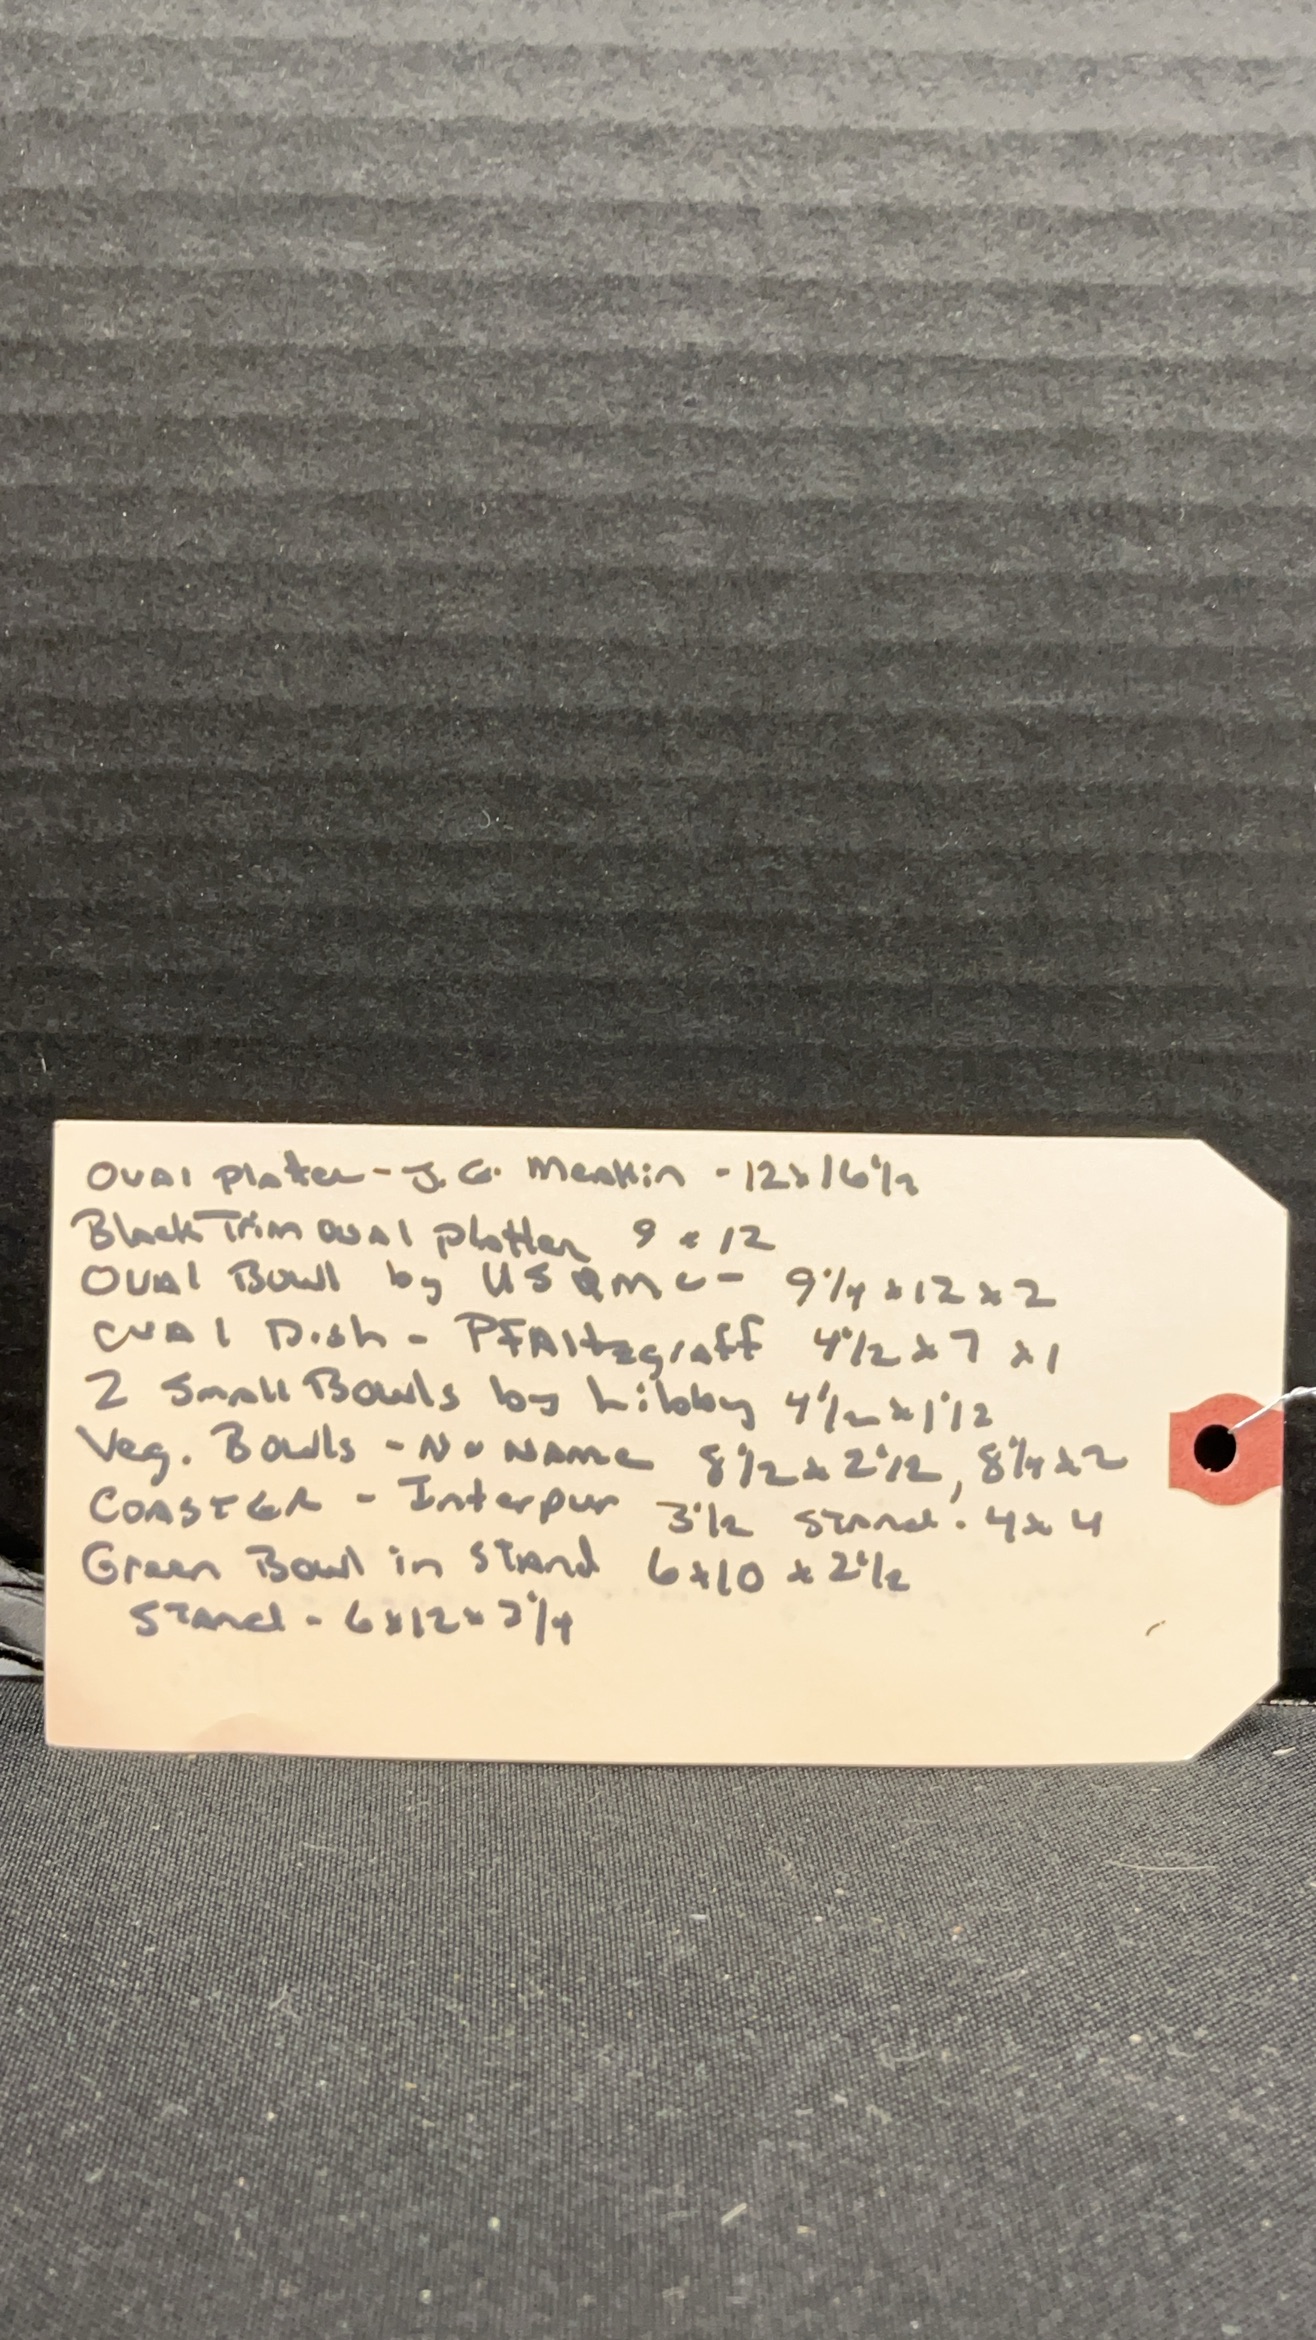 Oval platter - J. G. Meakin - 12 x 16 1/2
Black Trim Oval platter 9 x 12
Oval Bowl by USQMC - 9 1/4 x 12 x 2
Oval Dish - PFAltzgraff 4 1/2 x 7 x 1
2 Small Bowls by Libby 4 1/2 x 1 1/2
Veg. Bowls - No Name 8 1/2 x 2 1/2, 8 1/4 x 2
COASTER - Interpur 3 1/2 Stand - 4 x 4
Green Bowl in Stand 6 x 10 x 2 1/2
Stand - 6 x 12 x 3 1/4